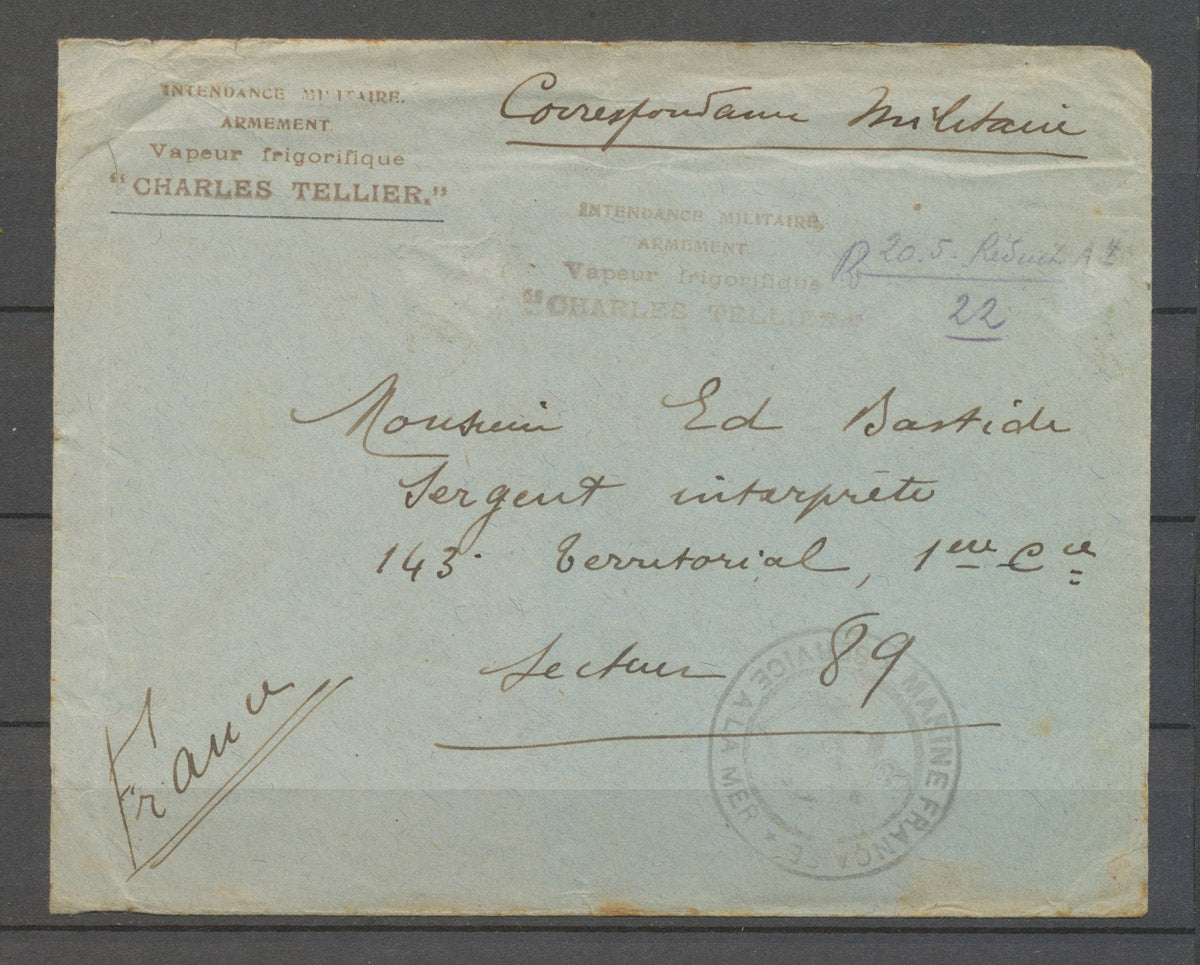 INTENDANCE MILITAIRE.
ARMEMENT.
Vapeur frigorifique
"CHARLES TELLIER."
Correspondance Militaire
INTENDANCE MILITAIRE.
ARMEMENT
Vapeur frigorifique
"CHARLES TELLIER."
20.5.
22
Monsieur Ed Bastide
Sergent interprète
143. Territorial, 1ere Cie
Secteur 89
France
MARINE FRANÇAISE * SERVICE A LA MER *